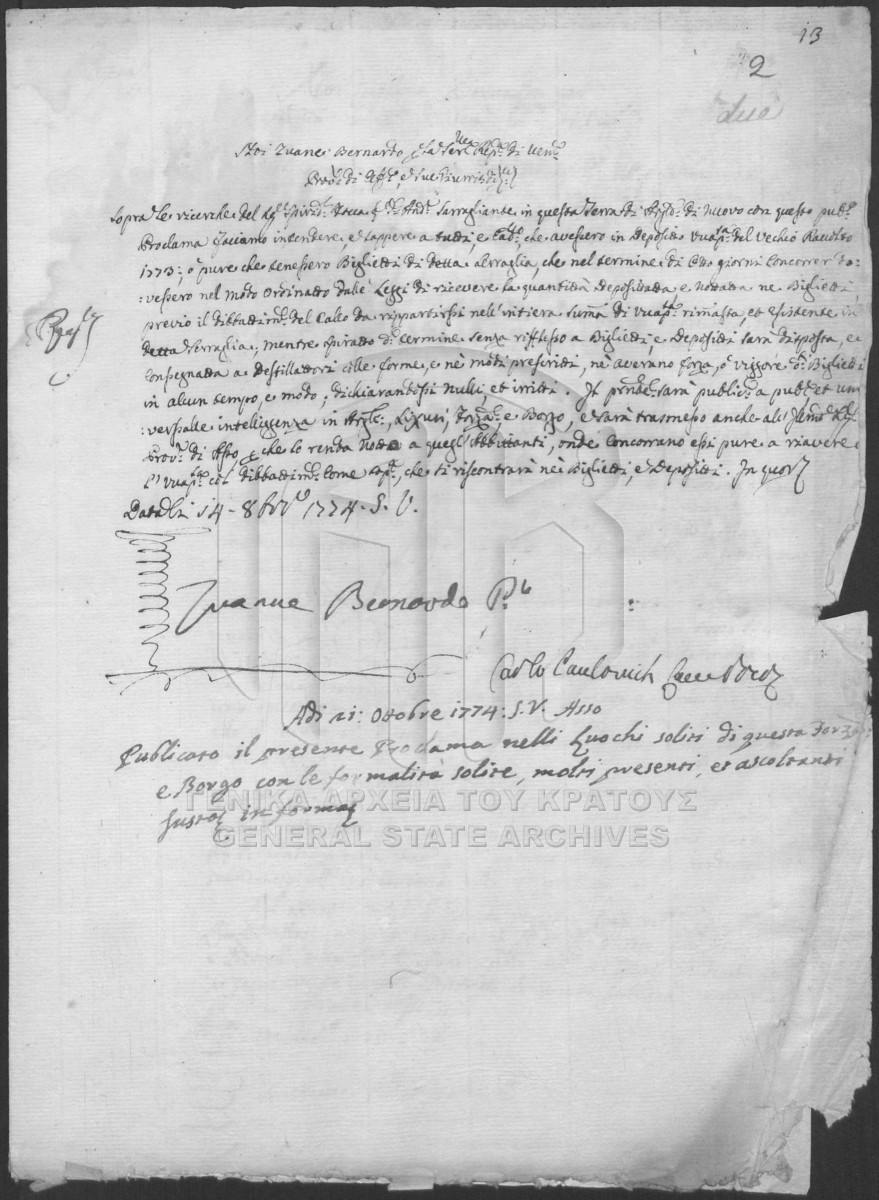 13
2
due
Noi Zuane Bernardo p la Ser.ma Rep.ca di Ven.a
Prov.r di Arg.li, e sue Giurisdi.ni
Sopra le ricerche del in questa Terra di di nuovo con questo pub.o
Proclama facciamo intendere, e sappere a tutti, e che avessero in deposito Uvapas.a del Vechio Raccolto
1773; ò pure che tenessero Biglietti di detta Serraglia, che nel termine di Otto giorni concorrer do=
=vessero nel modo ordinatto dalle Leggi di ricevere la quantità depositada e nottada ne Biglietti,
previo il dibbattim.to del Callo da rippartirsi nell'intiera summa di Uvap.a rimasta, et esistente in
detta Serraglia, mentre spirado d.o termine senza riflesso a Biglietti, e depositi sarà disposta, e
consegnada a destillattori colle forme, e nè modi preferidi, nè averano forza, ò viggore d.i Biglietti
in alcun tempo, e modo, dichiarandosi nulli, et irriti. Il pnte sarà public.o a pub.a et uni=
=versalle intelligenza in Arg.li, Lixuri, Forza, e Borgo, e sarà trasmesso anche al
Prov.r di Asso p che lo renda notto a quegl'Abbittanti, onde concorrano essi pure a riavere
l'Uvap.a col dibbattim.to come sop.a, che si riscontrarà nei Biglietti, e depositi. In quor
Data li 14 - 8bre 1774. S. V.
Zuanne Bernardo P.r
Carlo Paulovich Canc
Adi 21: Ottobre 1774: S. V. Asso
Publicato il presente Proclama nelli Luochi soliti di questa Forza
e Borgo con le formalità solite, molti presenti, et ascoltanti
Justa in forma
ΓΕΝΙΚΑ ΑΡΧΕΙΑ ΤΟΥ ΚΡΑΤΟΥΣ
GENERAL STATE ARCHIVES